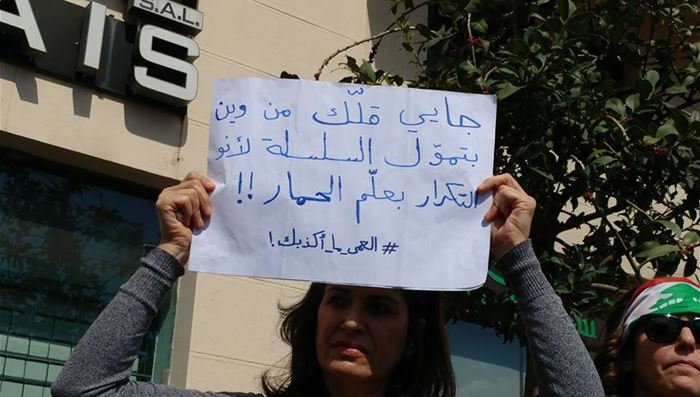 S.A.L.
AIS
جايي قلّك من وين
بتموّل السلسلة لأنو
التكرار بعلّم الحمار !!
#العمى_ما_أكذبك !